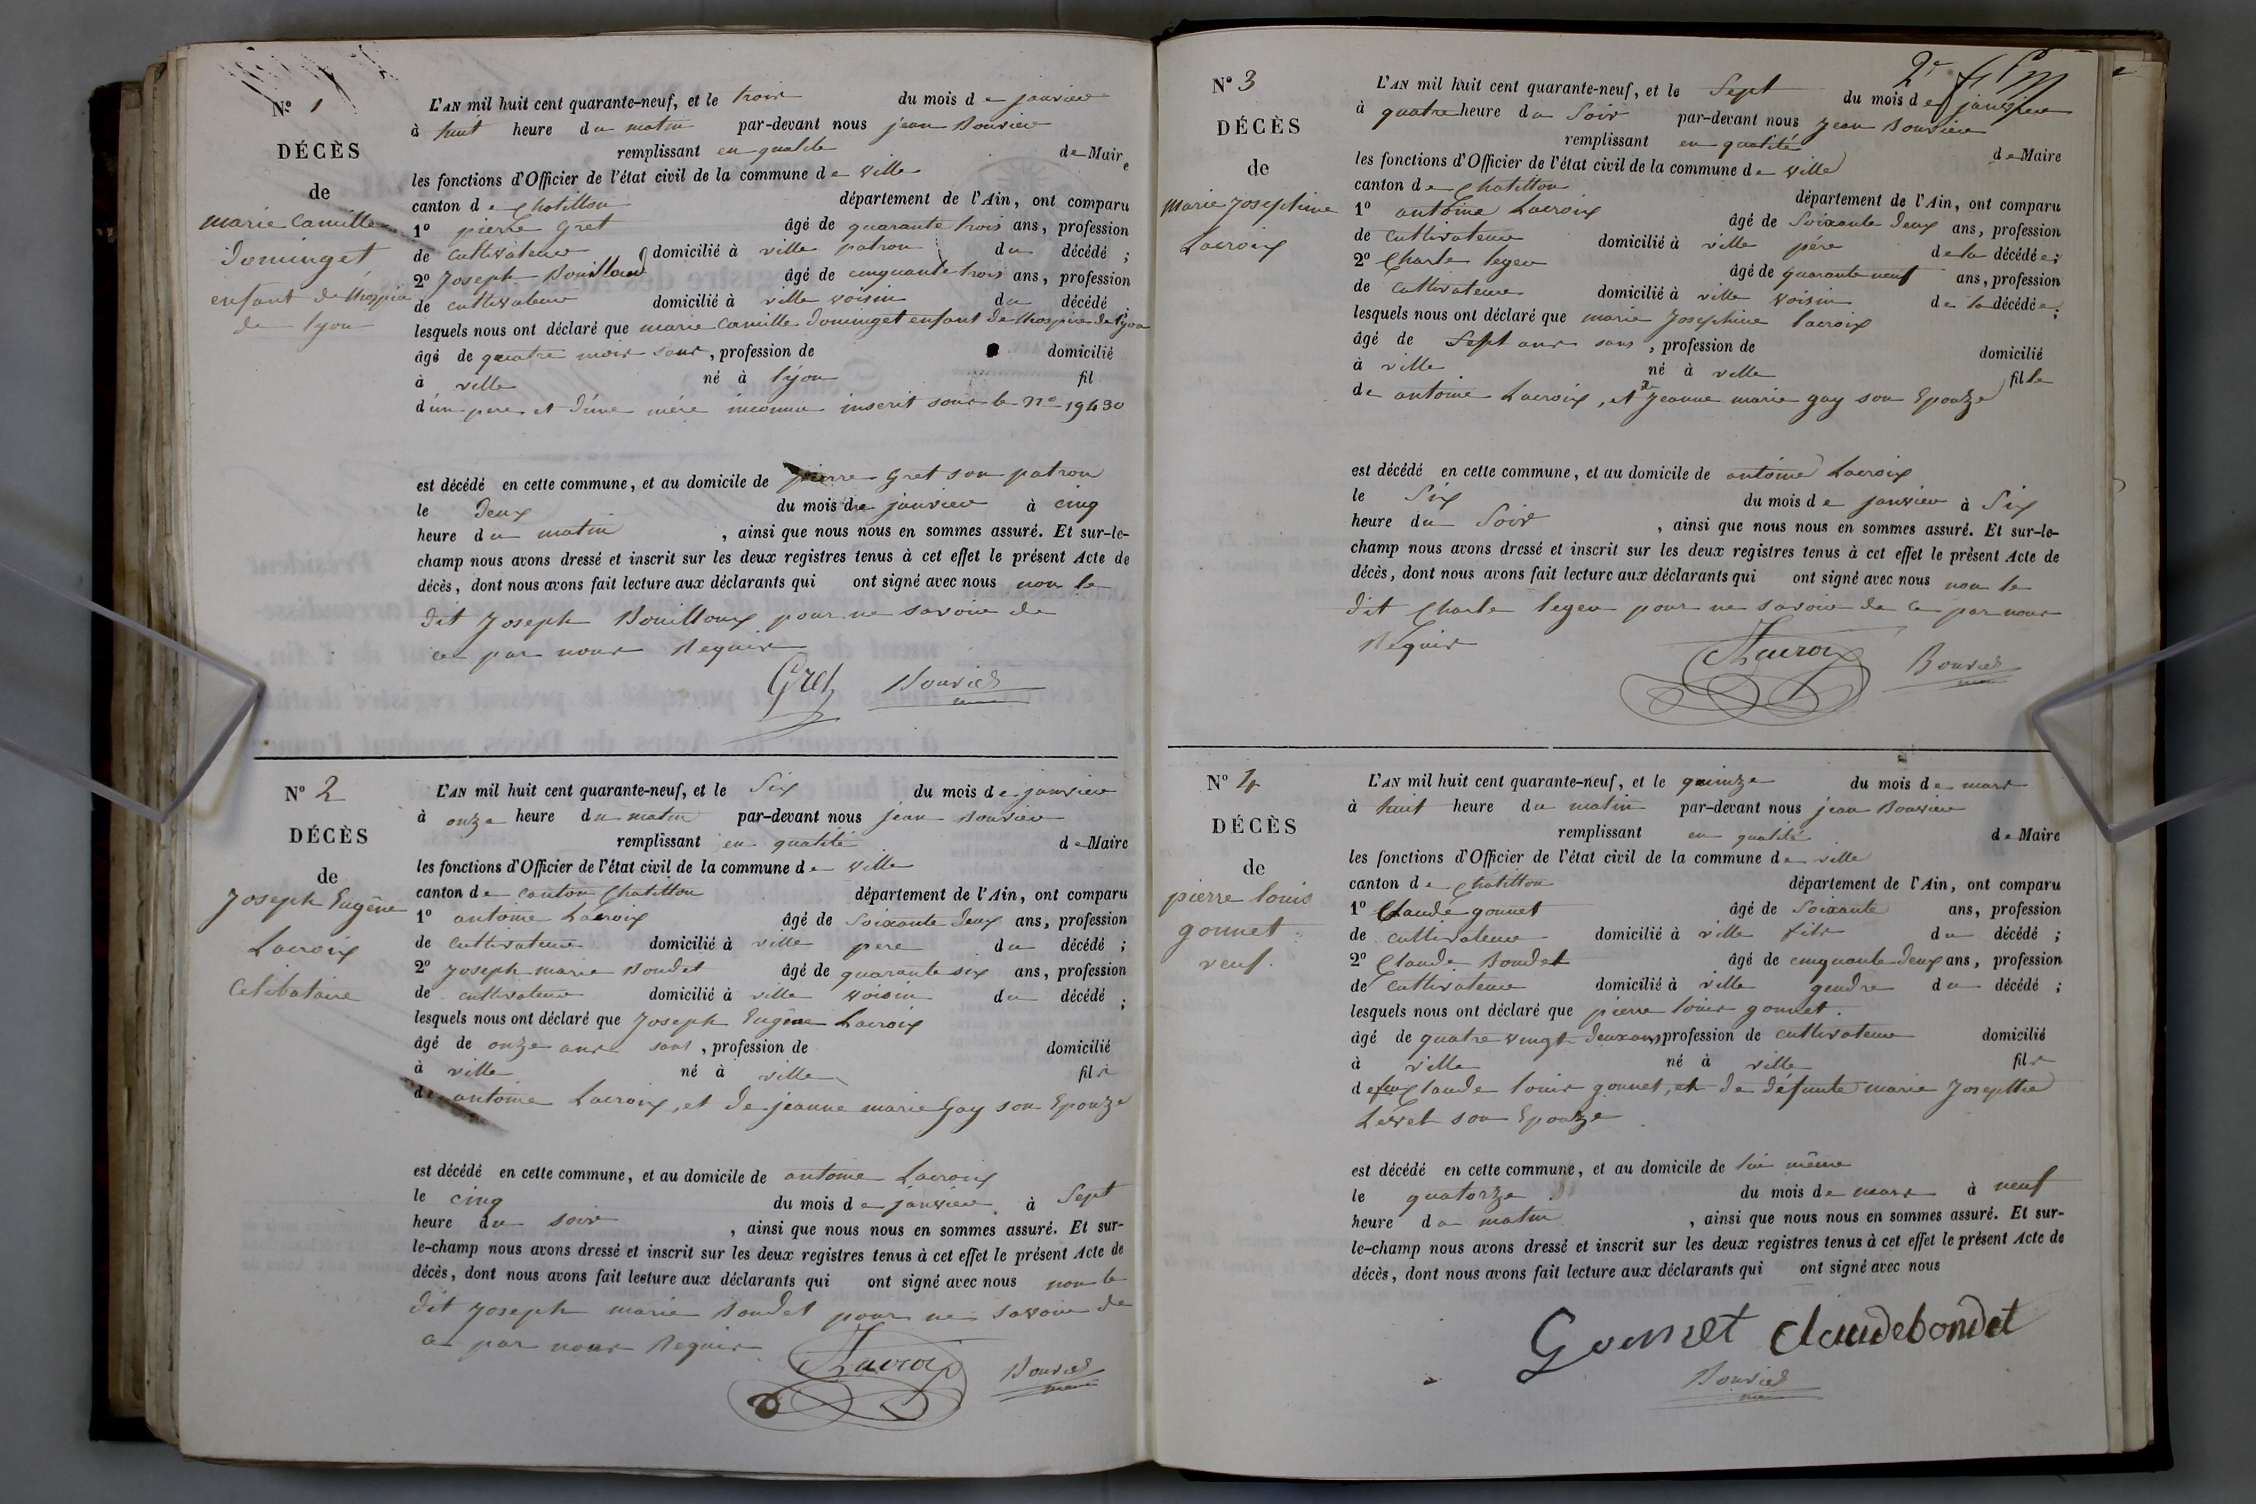 N° 1
DÉCÈS
de
marie camille
dominget
enfant de l'hospice
de lyon
L'AN mil huit cent quarante-neuf, et le trois du mois de janvier
à huit heure du matin par-devant nous jean Bouvier
remplissant en qualité de Maire
les fonctions d'Officier de l'état civil de la commune de ville
canton de Chatillon département de l'Ain, ont comparu
1° pierre Gret âgé de quarante trois ans, profession
de cultivateur domicilié à ville patron du décédé ;
2° Joseph Bouilloux âgé de cinquante trois ans, profession
de cultivateur domicilié à ville voisin du décédé
lesquels nous ont déclaré que marie camille dominget enfant de l'hospice de lyon
âgé de quatre mois sans, profession de domicilié
à ville né à lyon fil
d'un pere et d'une mére inconnu inscrit sous le n° 19430
est décédé en cette commune, et au domicile de pierre Gret son patron
le deux du mois de janvier à cinq
heure du matin, ainsi que nous nous en sommes assuré. Et sur-le-
champ nous avons dressé et inscrit sur les deux registres tenus à cet effet le présent Acte de
décès, dont nous avons fait lecture aux déclarants qui ont signé avec nous non le
dit Joseph Bouilloux pour ne savoir de
ce par nous Requis
Gret Bouvier
N° 2
DÉCÈS
de
Joseph Eugêne
Lacroix
Celibataire
L'AN mil huit cent quarante-neuf, et le Six du mois de janvier
à onze heure du matin par-devant nous jean Bouvier
remplissant en qualité de Maire
les fonctions d'Officier de l'état civil de la commune de ville
canton de canton Chatillon département de l'Ain, ont comparu
1° antoine Lacroix âgé de Soixante deux ans, profession
de cultivateur domicilié à ville pere du décédé ;
2° Joseph marie Bondet âgé de quarante six ans, profession
de cultivateur domicilié à ville voisin du décédé ;
lesquels nous ont déclaré que Joseph Eugêne Lacroix
âgé de onze ans sans, profession de domicilié
à ville né à ville fils
de antoine Lacroix, et de jeanne marie Gay son Epouze
est décédé en cette commune, et au domicile de antoine Lacroix
le cinq du mois de janvier à Sept
heure du soir, ainsi que nous nous en sommes assuré. Et sur-
le-champ nous avons dressé et inscrit sur les deux registres tenus à cet effet le présent Acte de
décès, dont nous avons fait lecture aux déclarants qui ont signé avec nous non le
dit Joseph marie Bondet pour ne savoir de
ce par nous Requis
Lacroix Bouvier
2e
N° 3
DÉCÈS
de
Marie Josephine
Lacroix
L'AN mil huit cent quarante-neuf, et le Sept du mois de janvier
à quatre heure du Soir par-devant nous Jean Bouvier
remplissant en qualité de Maire
les fonctions d'Officier de l'état civil de la commune de ville
canton de Chatillon département de l'Ain, ont comparu
1° antoine Lacroix âgé de Soixante deux ans, profession
de cultivateur domicilié à ville pére de la décédée ;
2° Charle leger âgé de quarante neuf ans, profession
de cultivateur domicilié à ville voisin de la décédée ;
lesquels nous ont déclaré que marie Josephine lacroix
âgé de Sept ans sans, profession de domicilié
à ville né à ville fille
de antoine Lacroix, et de Jeanne marie gay son Epouze
est décédé en cette commune, et au domicile de antoine Lacroix
le Six du mois de janvier à Six
heure du Soir, ainsi que nous nous en sommes assuré. Et sur-le-
champ nous avons dressé et inscrit sur les deux registres tenus à cet effet le présent Acte de
décès, dont nous avons fait lecture aux déclarants qui ont signé avec nous non le
dit Charle leger pour ne savoir de ce par nous
Requis
Lacroix Bouvier
N° 4
DÉCÈS
de
pierre louis
gonnet
veuf.
L'AN mil huit cent quarante-neuf, et le quinze du mois de mars
à huit heure du matin par-devant nous jean Bouvier
remplissant en qualité de Maire
les fonctions d'Officier de l'état civil de la commune de ville
canton de Chatillon département de l'Ain, ont comparu
1° Claude gonnet âgé de Soixante ans, profession
de cultivateur domicilié à ville fils du décédé ;
2° Claude Bondet âgé de cinquante deux ans, profession
de cultivateur domicilié à ville gendre du décédé ;
lesquels nous ont déclaré que pierre louis gonnet.
âgé de quatre vingt deux ans, profession de cultivateur domicilié
à ville né à ville fils
de feu Claude louis gonnet, et de défunte marie Josepthe
Levret son Epouze
est décédé en cette commune, et au domicile de lui même
le quatorze du mois de mars à neuf
heure du matin, ainsi que nous nous en sommes assuré. Et sur-
le-champ nous avons dressé et inscrit sur les deux registres tenus à cet effet le présent Acte de
décès, dont nous avons fait lecture aux déclarants qui ont signé avec nous
Gonnet Claudebondet
Bouvier